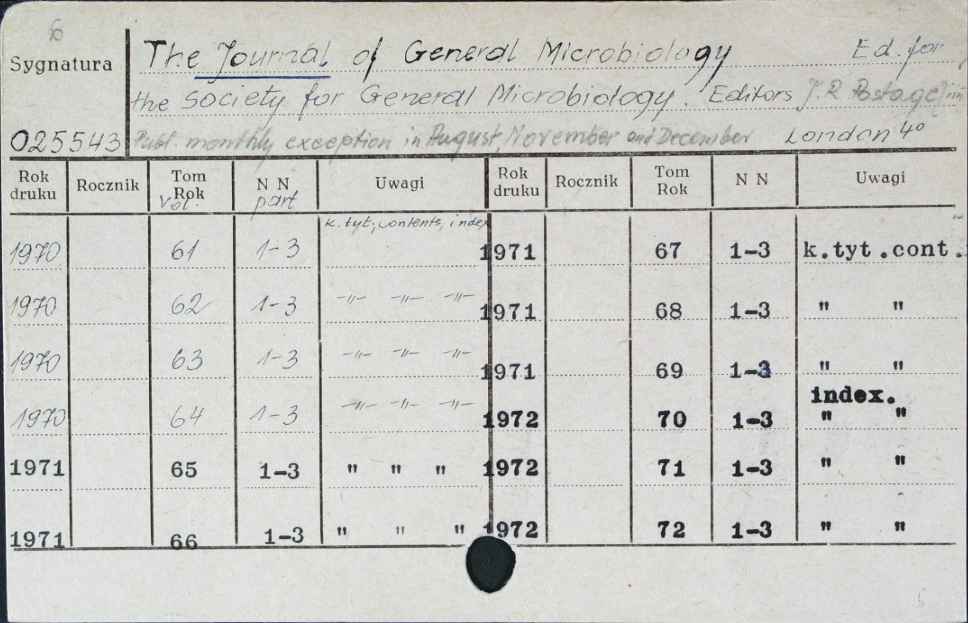 6
Sygnatura The Journal of General Microbiology Ed. for
the Society for General Microbiology. Editors J. R. Postage
025543 Publ. monthly exception in August, November and December London 4º
Rok druku Rocznik Tom Rok N N Uwagi Rok druku Rocznik Tom Rok N N Uwagi
Vol. part
k. tyt, contents, index
1970 61 1-3 1971 67 1-3 k.tyt.cont.
1970 62 1-3 -"- -"- -"- 1971 68 1-3 " "
1970 63 1-3 -"- -"- -"- 1971 69 1-3 " "
index.
1970 64 1-3 -"- -"- -"- 1972 70 1-3 " "
1971 65 1-3 " " " 1972 71 1-3 " "
1971 66 1-3 " " " 1972 72 1-3 " "